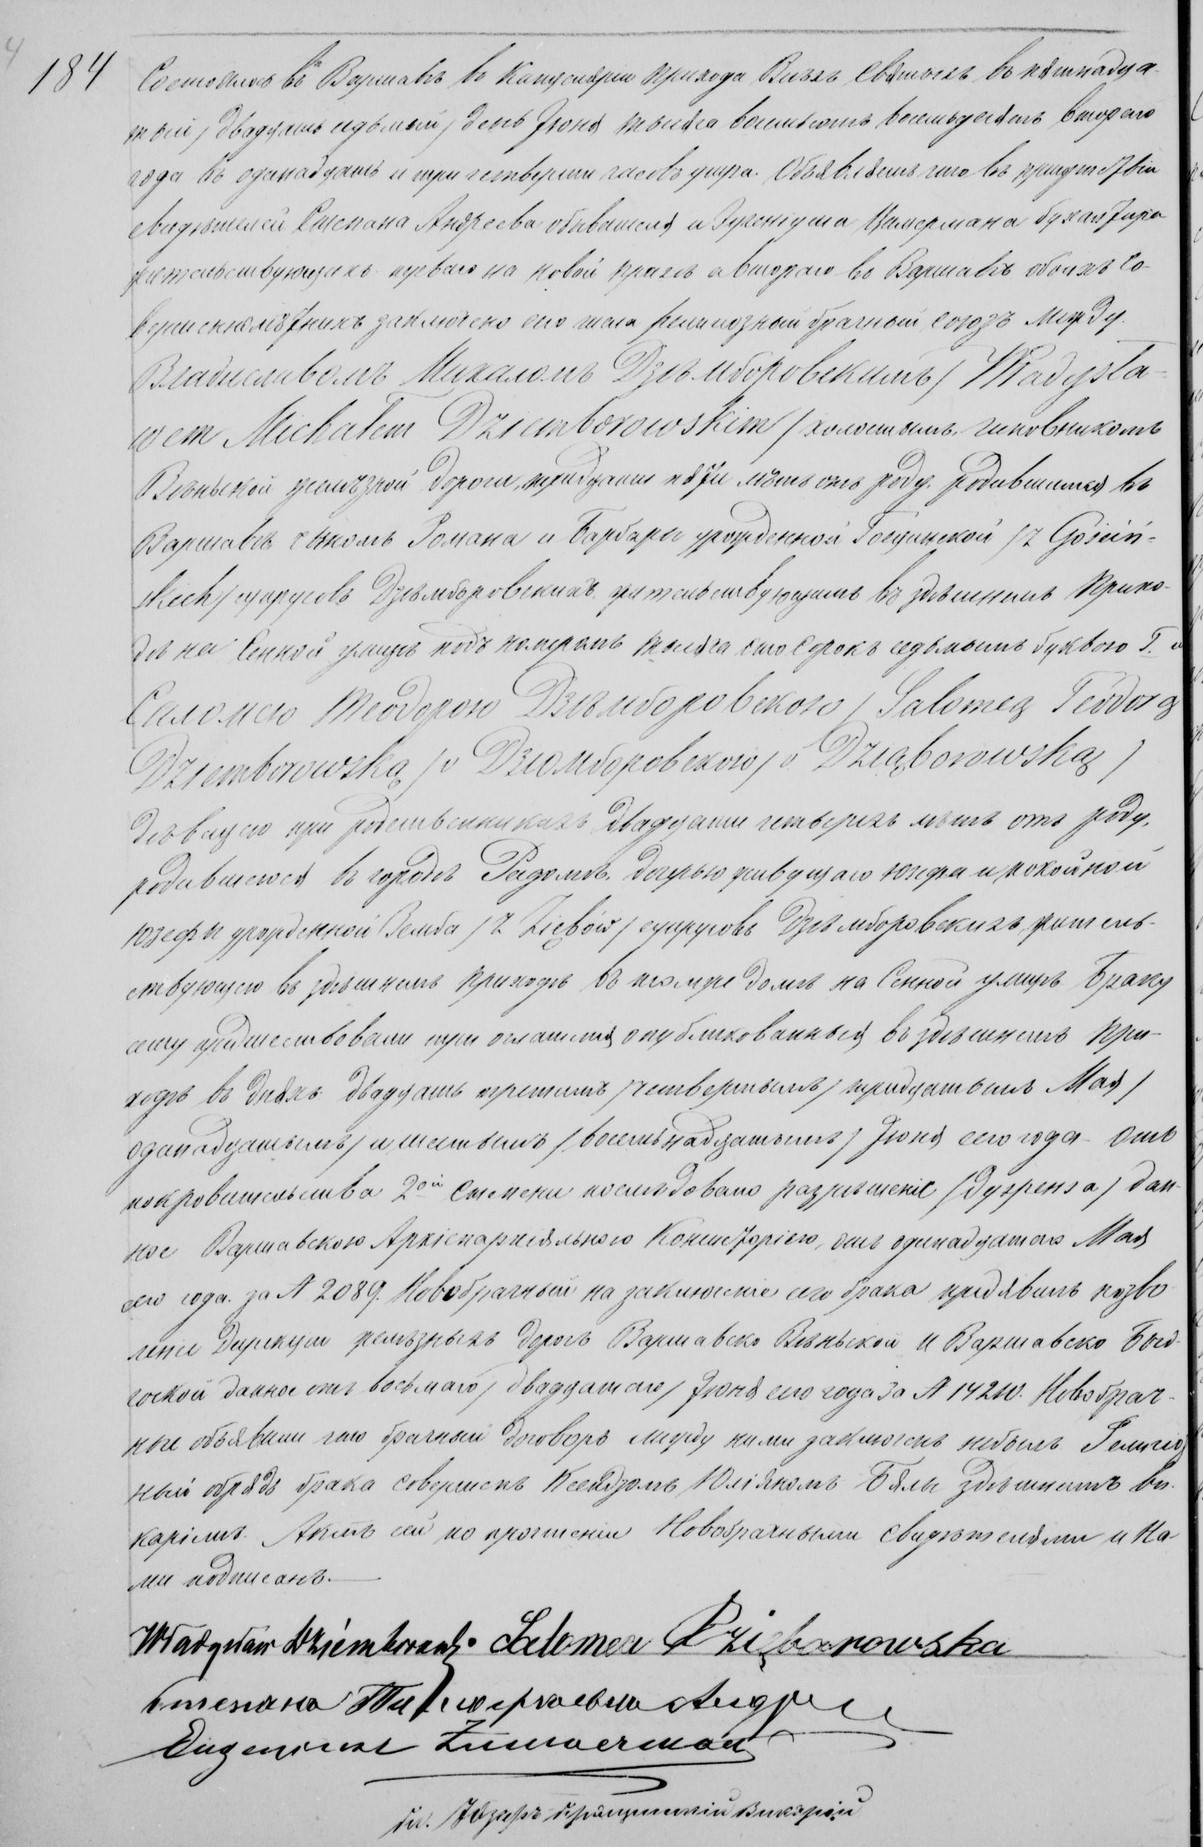 184
Состоялось въ Варшавѣ въ Канцеляріи прихода Всѣхъ Святыхъ въ пятнадца-
тый / двадцать седьмый / день Іюня тысяча восемьсотъ восемьдесятъ втораго
года въ одинадцать и три четверти часовъ утра. Объявляемъ что въ присутствіи
свидѣтелей Степана Андреева обывателя и Эугеніуша Цимермана бухгалтера
жительствующихъ перваго на новой прагѣ а втораго въ Варшавѣ обоихъ со-
вершеннолѣтнихъ заключено сего числа религіозный брачный союзъ между
Владиславомъ Михаломъ Дзѣмборовскимъ / Władysła-
wem Michałem Dziemborowskim / холостымъ чиновникомъ
Вѣнской желѣзной дороги, тридцати пяти лѣтъ отъ роду родившимся въ
Варшавѣ сыномъ Романа и Барбары урожденной Госцинской / z Gościń-
skich / супруговъ Дзѣмборовскихъ жительствующимъ въ здѣшнемъ прихо-
дѣ на Сенной улицѣ подъ номеромъ тысяча сто сорокъ седьмымъ буквою Г. и
Саломею Теодорою Дзѣмборовскою / Salomeą Teodorą
Dziemborowską / v Дзіомборовскою / v Dziąborowską /
дѣвицею при родственникахъ двадцати четырехъ лѣтъ отъ роду,
родившеюся въ городѣ Радомѣ дочерью живущаго Юзефа и покойной
Юзефы урожденной Земба / z Ziębów / супруговъ Дзѣмборовскихъ, житель-
ствующею въ здѣшнемъ приходѣ въ томже домѣ на Сенной улицѣ Браку
сему предшествовали три оглашенія опубликованныя въ здѣшнемъ при-
ходѣ въ дняхъ двадцать третьимъ / четвертымъ / тридцатымъ Мая /
одинадцатымъ / и шестымъ / восемьнадцатымъ / Іюня сего года. Отъ
покровительства 2ой степени послѣдовало разрѣшеніе / диспенса / дан-
ное Варшавскою Архіепархіяльною Консисторіею, отъ одинадцатаго Мая
сего года за N 2089. Новобрачный на заключеніе сего брака предявилъ позво-
леніе Дирекціи желѣзныхъ дорогъ Варшавско Вѣнской и Варшавско Быд-
гоской данное отъ восьмаго / двадцатаго / Іюня сего года за N 14210. Новобрач-
ные объявили что брачный договоръ между ними заключенъ небылъ Религіоз-
ный обрядъ брака совершенъ Ксендзомъ Юліяномъ Бялы здѣшнимъ ви-
каріемъ. Актъ сей по прочтеніи Новобрачными свидѣтелями и На-
ми подписанъ.
Władysław Dziemborowski. Salomea Dzięborowska
Степанъ Андрее
Eugeniusz Zimmerman
Викарій